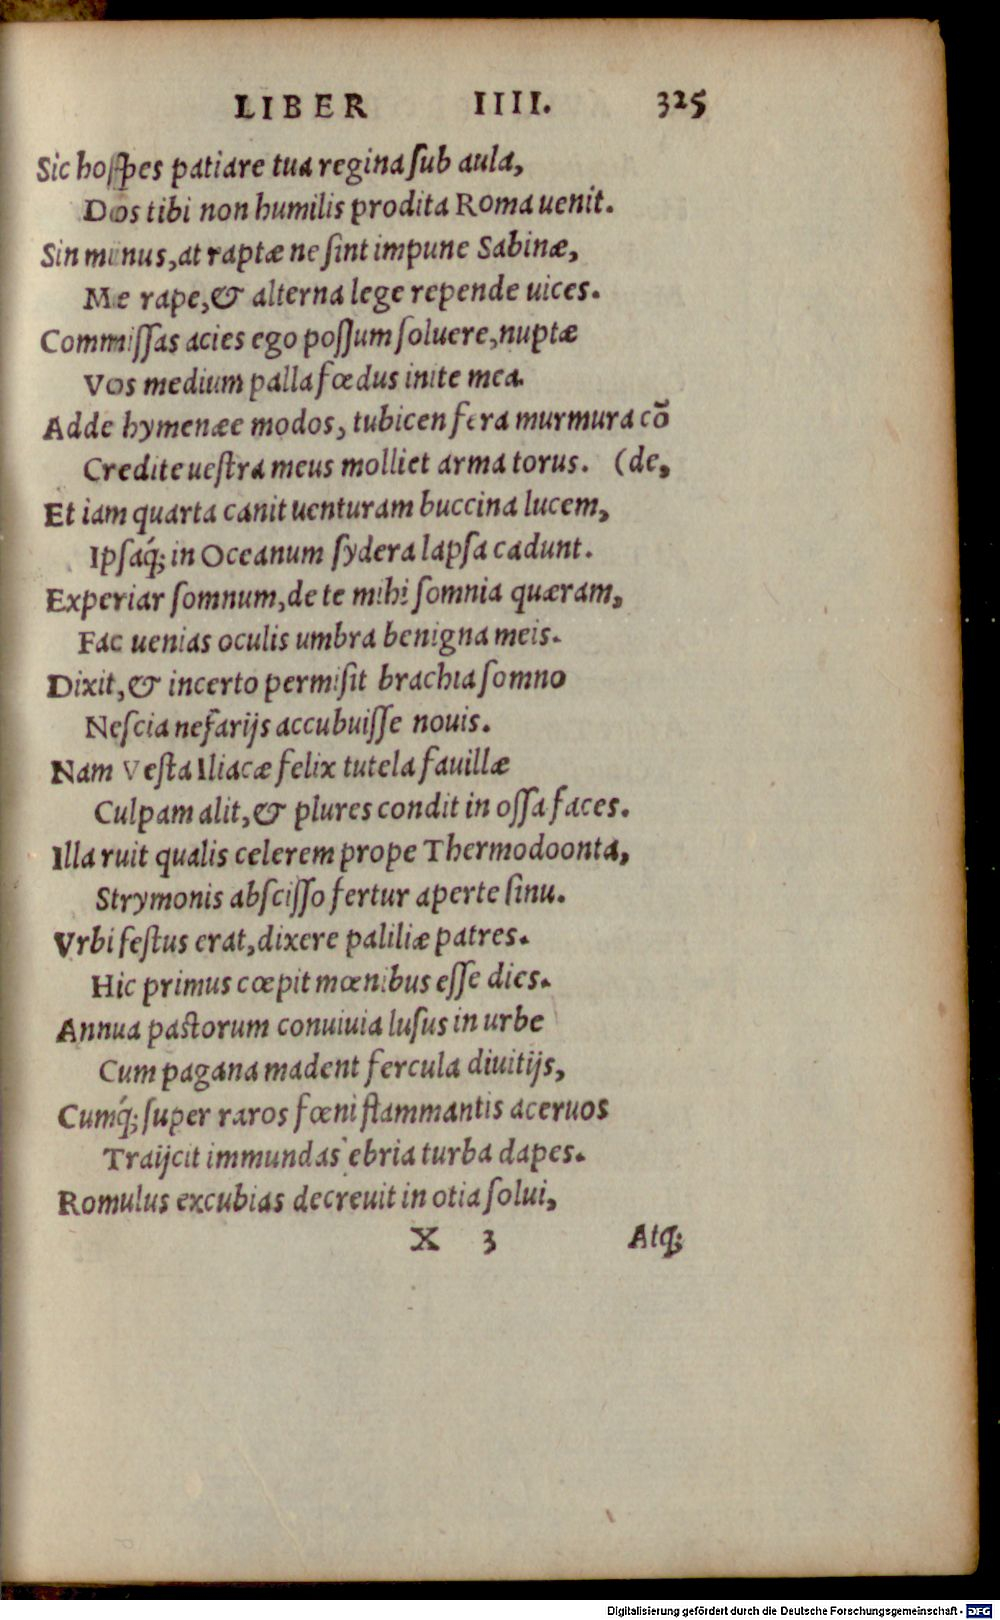 LIBER IIII. 325
Sic hoſpes patiare tua regina ſub aula,
Dos tibi non humilis prodita Roma uenit.
Sin minus, at raptæ ne ſint impune Sabinæ,
Me rape, & alterna lege repende uices.
Commiſſas acies ego poſſum ſoluere, nuptæ
Vos medium palla fœdus inite mea.
Adde hymenæe modos, tubicen fera murmura cō
Credite ueſtra meus molliet arma torus. (de,
Et iam quarta canit uenturam buccina lucem,
Ipſaq́; in Oceanum ſydera lapſa cadunt.
Experiar ſomnum, de te mihi ſomnia quæram,
Fac uenias oculis umbra benigna meis.
Dixit, & incerto permiſit brachia ſomno
Neſcia nefarijs accubuiſſe nouis.
Nam Veſta Iliacæ felix tutela fauillæ
Culpam alit, & plures condit in oſſa faces.
Illa ruit qualis celerem prope Thermodoonta,
Strymonis abſciſſo fertur aperte ſinu.
Vrbi feſtus erat, dixere paliliæ patres.
Hic primus cœpit mœnibus eſſe dies.
Annua paſtorum conuiuia luſus in urbe
Cum pagana madent fercula diuitijs,
Cumq́; ſuper raros fœni flammantis aceruos
Traijcit immundas ebria turba dapes.
Romulus excubias decreuit in otia ſolui,
X 3 Atq;
Digitalisierung gefördert durch die Deutsche Forschungsgemeinschaft - DFG